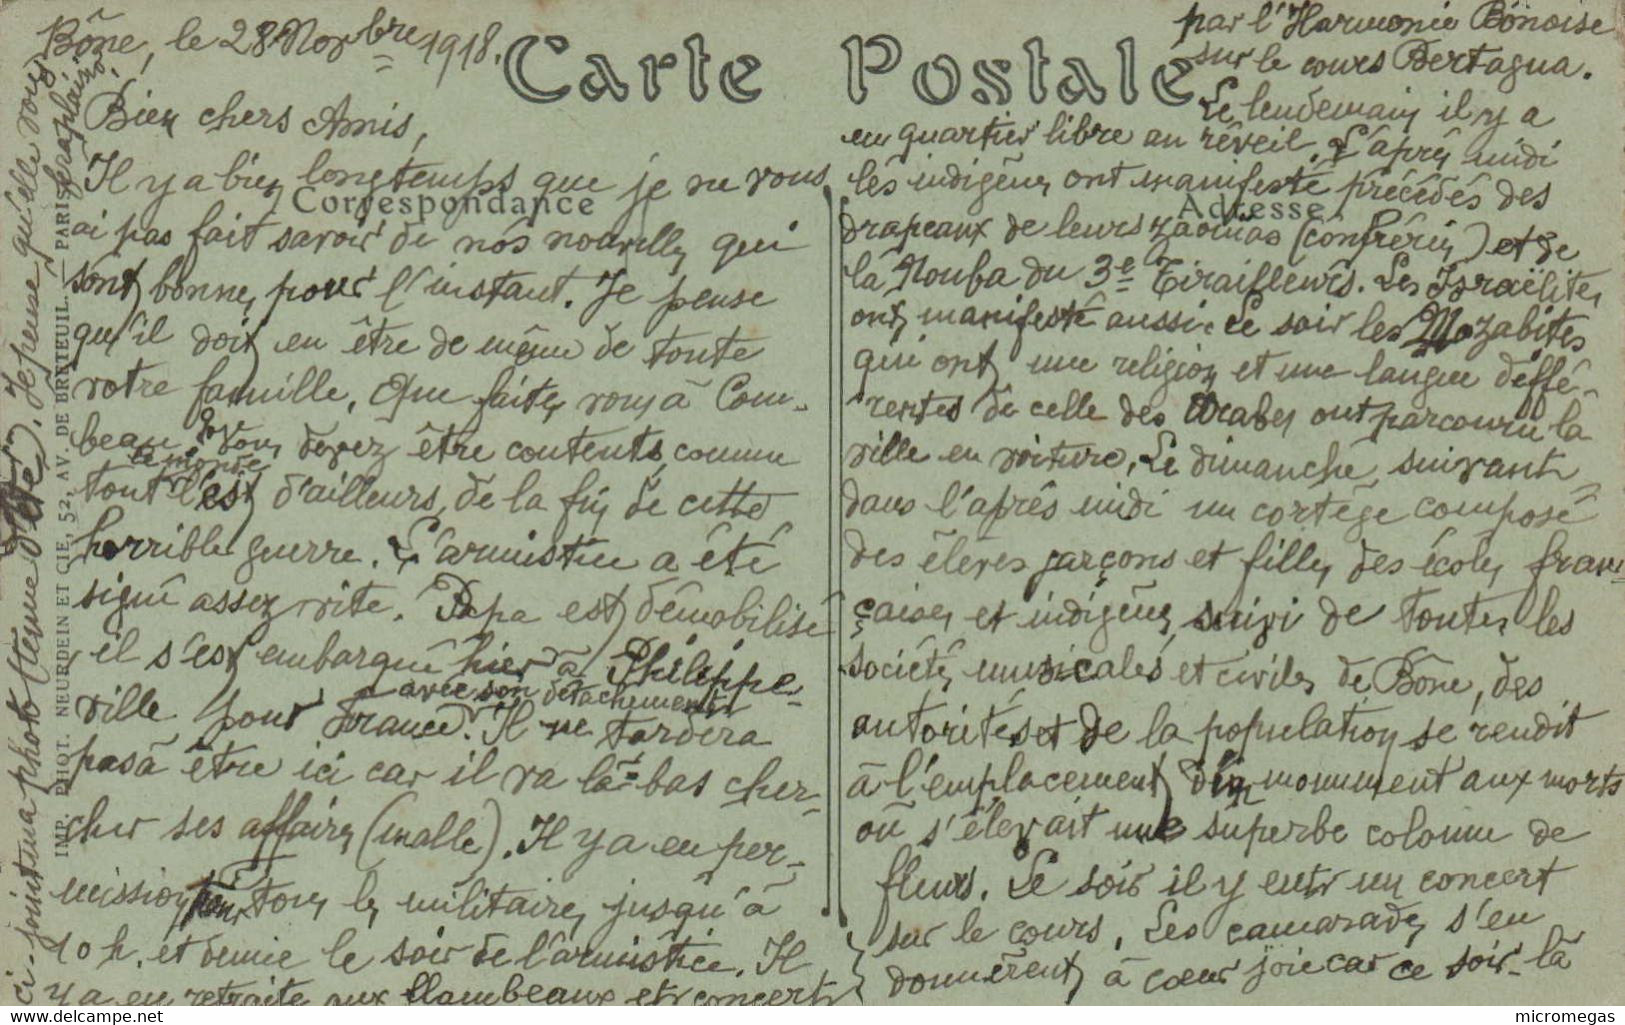 Bône, le 28 Novbre 1918.
Carte Postale
Bien chers Amis,
Il y a bien longtemps que je ne vous
Correspondance
ai pas fait savoir de nos nouvelles qui
sont bonnes pour l'instant. Je pense
qu'il doit en être de même de toute
votre famille. Que faites vous à Com-
beau ? Vous devez être contents, comme
tout le monde l'est d'ailleurs, de la fin de cette
horrible guerre. L'armistice a été
signé assez vite. Papa est démobilisé
il s'est embarqué hier à Philippe-
ville pour France avec son détachement. Il ne tardera
pas à être ici car il va là-bas cher-
cher ses affaires (malle). Il y a eu per-
mission pour tous les militaires jusqu'à
10 h. et demie le soir de l'armistice. Il
y a eu retraite aux flambeaux et concert
par l'Harmonie Bônoise
sur le cours Bertagna.
Le lendemain il y a
eu quartier libre au réveil. L'après midi
les indigènes ont manifesté précédés des
Adresse
drapeaux de leurs zaouïas (confréries) et de
la Nouba du 3e Tirailleurs. Les Israëlites
ont manifesté aussi. Le soir les Mozabites
qui ont une religion et une langue déffé-
rentes de celle des Arabes ont parcouru la
ville en voiture. Le dimanche suivant
dans l'après midi un cortège composé
des élèves garçons et filles des écoles fran-
çaises et indigènes suivi de toutes les
sociétés musicales et civiles de Bône, des
autorités et de la population se rendit
à l'emplacement d'un monument aux morts
où s'élevait une superbe colonne de
fleurs. Le soir il y eut un concert
sur le cours. Les camarades s'en
donnèrent à coeur joie car ce soir-là
ci-joint ma photo (tenue d'été). Je pense qu'elle vous
fera plaisir.
IMP. PHOT. NEURDEIN ET CIE, 52, AV. DE BRETEUIL. — PARIS
www.delcampe.net
micromegas